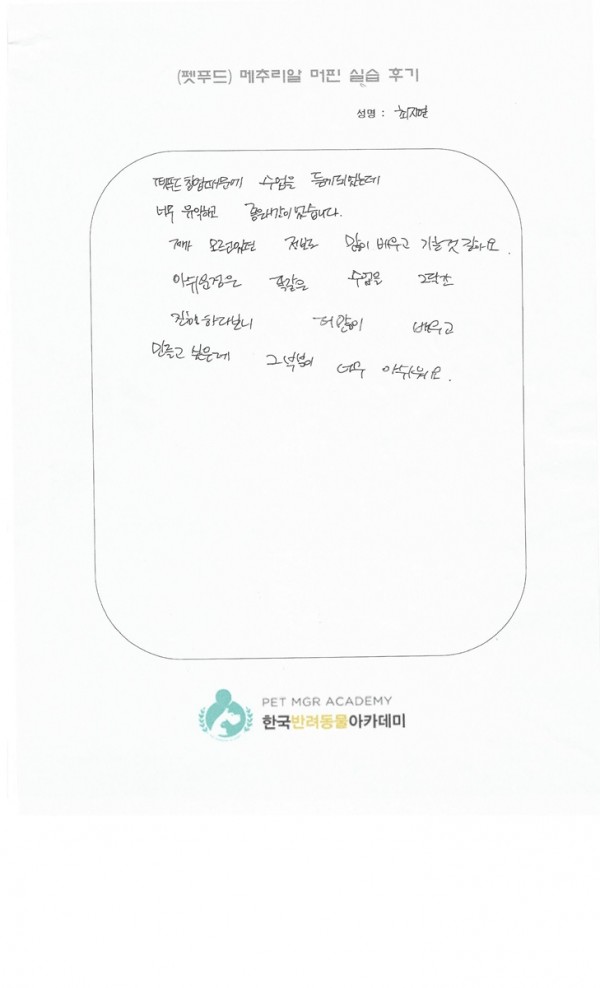 (펫푸드) 메추리알 머핀 실습 후기
성명 : 최지연
펫푸드 창업때문에 수업을 듣게되었는데
너무 유익하고 좋은시간이였습니다.
제가 모르고있던 정보도 많이 배우고 가는것 같아요.
아쉬운점은 똑같은 수업을
진행하다보니 더 많이 배우고
만들고 싶은데 그 부분이 너무 아쉬워요.
PET MGR ACADEMY
한국반려동물아카데미